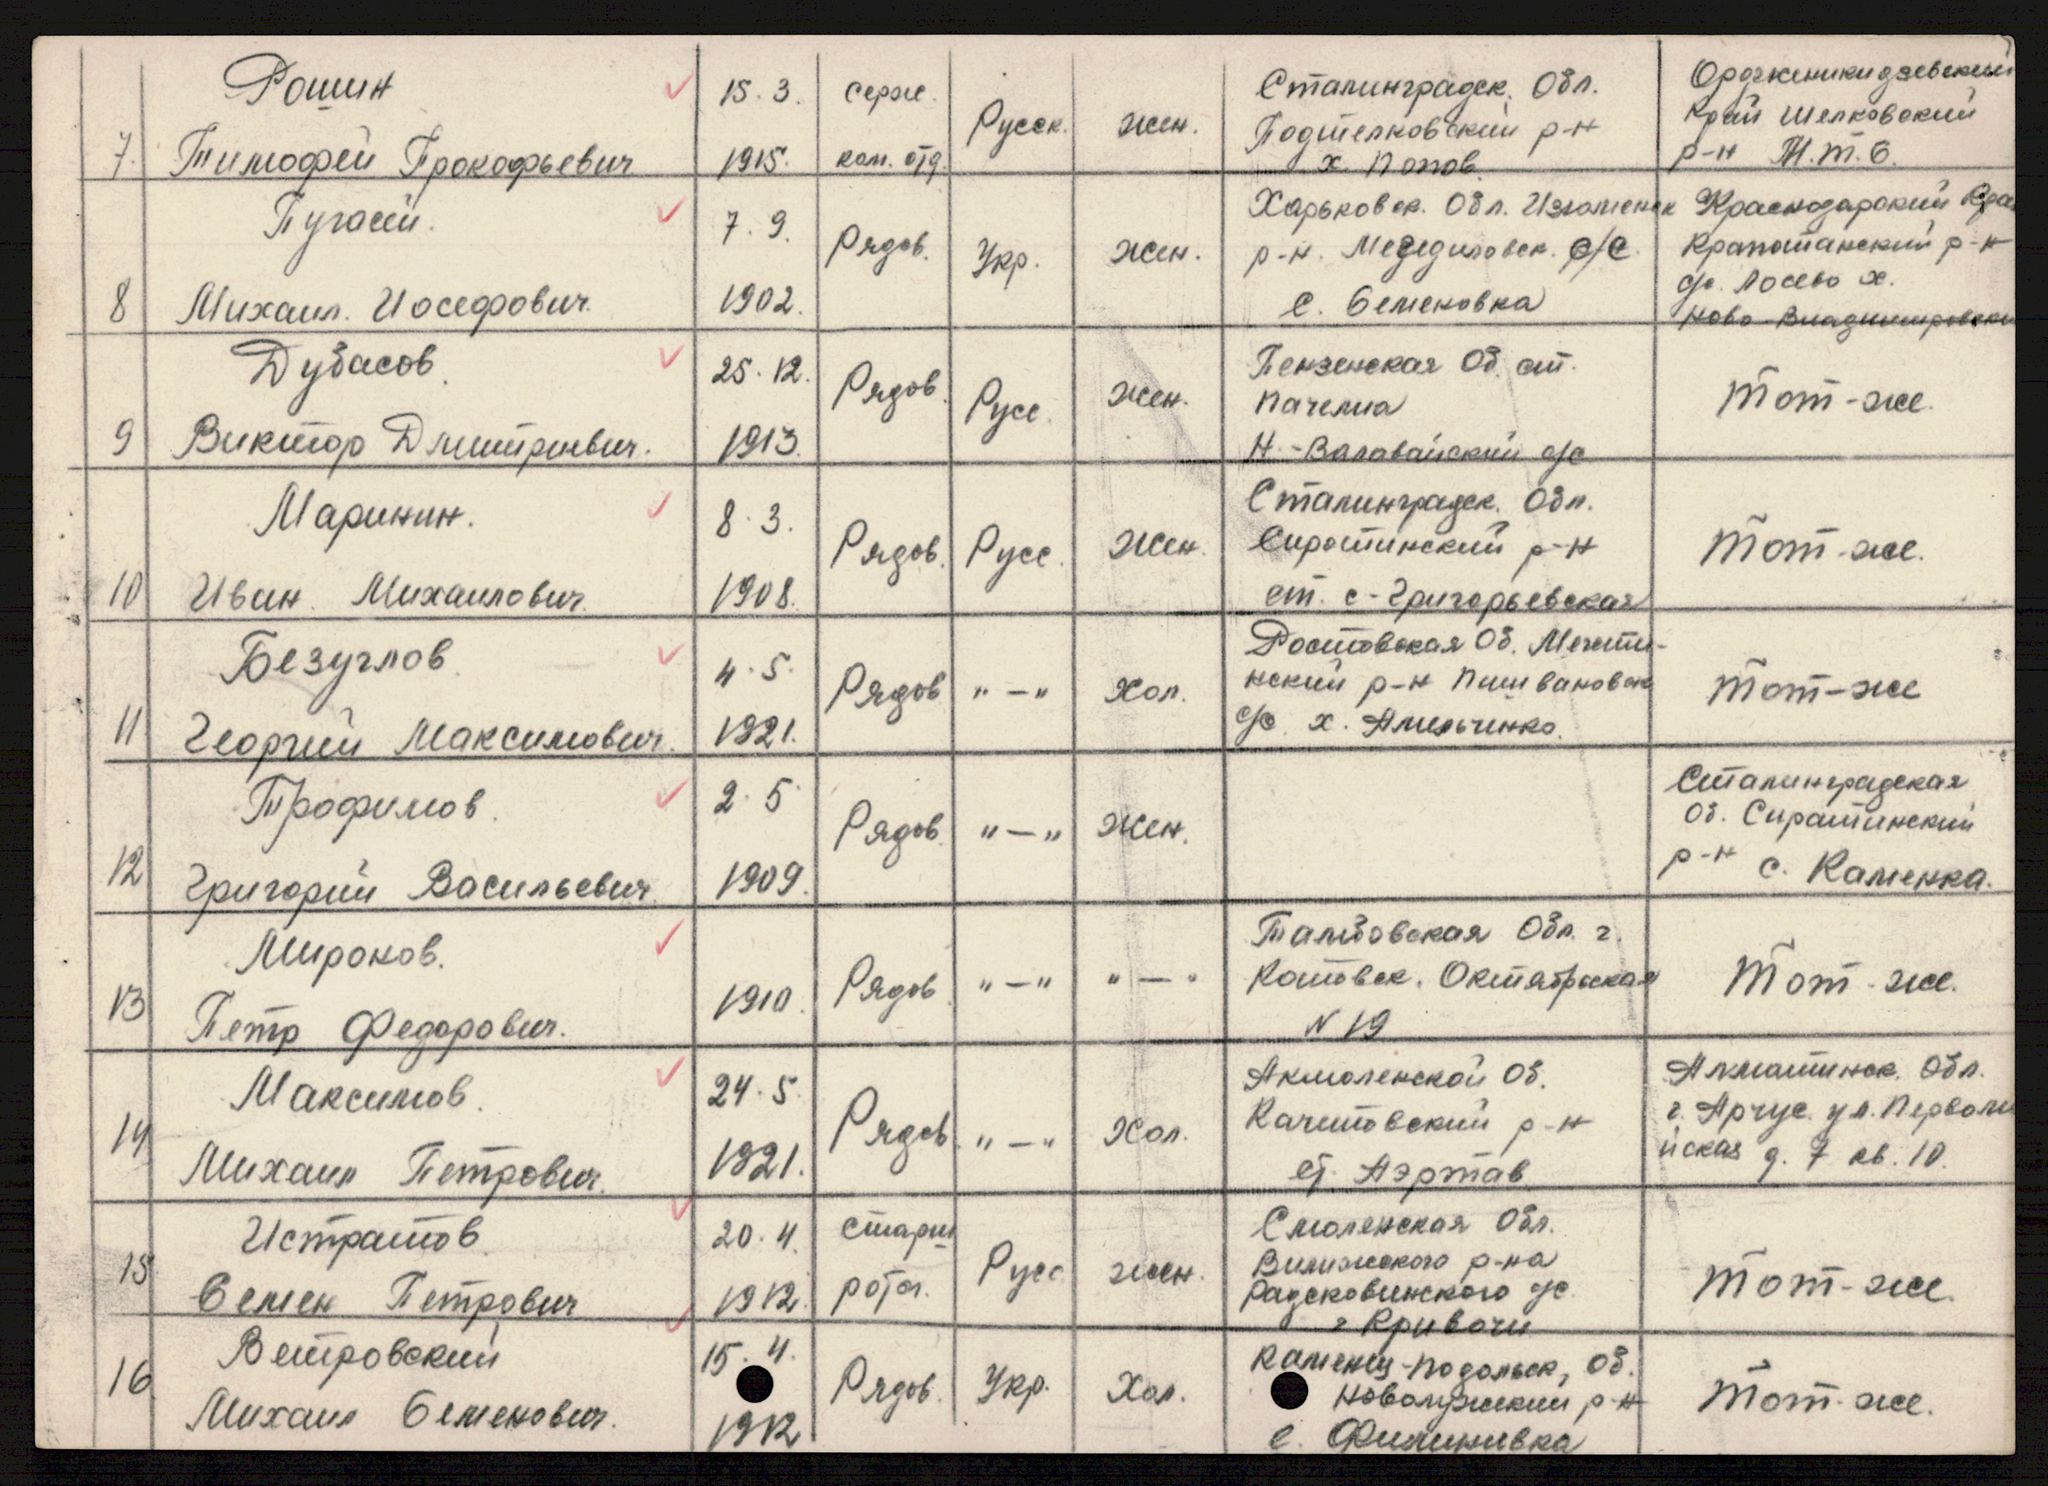 Рошин 15.3. серж. Сталинградск. Обл. Орджоникидзевский
7. Тимофей Прокофьевич 1915. ком. отд. Русск. жен. Подтелковский р-н х. Попов. Край Шелковский р-н М.Т.С.
Пугасий. 7.9. Харьковск. Обл. Изюменск Краснодарский Кра
8 Михаил. Иосефович. 1902. Рядов. Укр. Жен. р-н. с/с. с. Семеновка р-н с/с. Лосево х. Ново-Владимировски
Дубасов. 25.12. Пензенская Об. ст.
9 Виктор Дмитриевич. 1913. Рядов. Русс. Жен. Пачелма Н.-Валавайский с/с Тот-же.
Маринин. 8.3. Сталинградск. Обл.
10 Иван. Михаилович. 1908. Рядов. Русс. Жен. Сиротинский р-н ст. с-Григорьевская Тот-же.
Безуглов. 4.5. Ростовская Об. Мечети-
11 Георгий Максимович. 1921. Рядов "—" Хол. нский р-н с/с. х. Тот-же
Трофимов. 2.5 Сталинградская
12 Григорий Васильевич. 1909. Рядов. "—" Жен. Об. Сиратинский р-н с. Каменка.
Миронов. Тамбовская Обл. г.
13 Петр Федорович. 1910. Рядов "—" "—" Котовск. Октябрьская N 19 Тот-же.
Максимов. 24.5. Акмоленской Об. Алматинск. Обл.
14 Михаил Петрович. 1921. Рядов "—" Хол. р-н ст. Аэртав г. Арчус. ул. Первома йская д. 7 кв. 10.
Истратов 20.4. Старш Смоленская Обл.
15 Семен Петрович 1912. рота. Русс жен. Вилижского р-на с/с. г Кривочи Тот-же.
Ветровский 15.4. Каменец-Подольск, Об.
16 Михаил Семенович. 1912 Рядов. Укр. Хол. р-н с. Филиновка Тот-же.